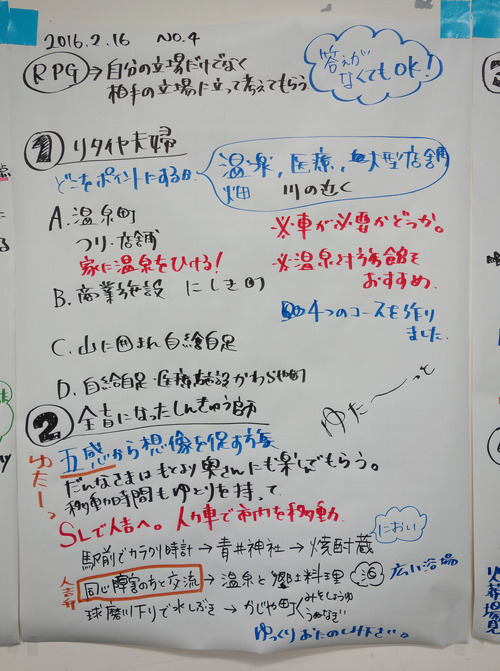 2016.2.16 NO.4
RPG→自分の立場だけでなく
相手の立場に立って考えてもらう
答えが
なくてもOK!
① リタイヤ夫婦
どこをポイントにするか
温泉, 医療, 大型店舗
畑 川の近く
A. 温泉町
つり・店舗
家に温泉をひける!
※車が必要かどうか。
※温泉付旅館を
おすすめ
B. 商業施設 にしき町
4つのコースを作り
ました
C. 山に囲まれ自給自足
D. 自給自足・医療施設かわらや町
ゆたーっと
② 全盲になったしんきゅう師
ゆたーっ
五感から想像を促す方策
だんなさまはもとより奥さんにも楽しんでもらう。
移動時間もゆとりを持って
SLで人吉へ。人力車で市内を移動
におい
駅前でカラクリ時計→青井神社→焼酎蔵
人吉
同じ障害の方と交流→温泉と郷土料理 広い浴場
球磨川下りで水しぶき→かじや町 みそしょうゆ
うなぎ
ゆっくりおたのしみ下さい。